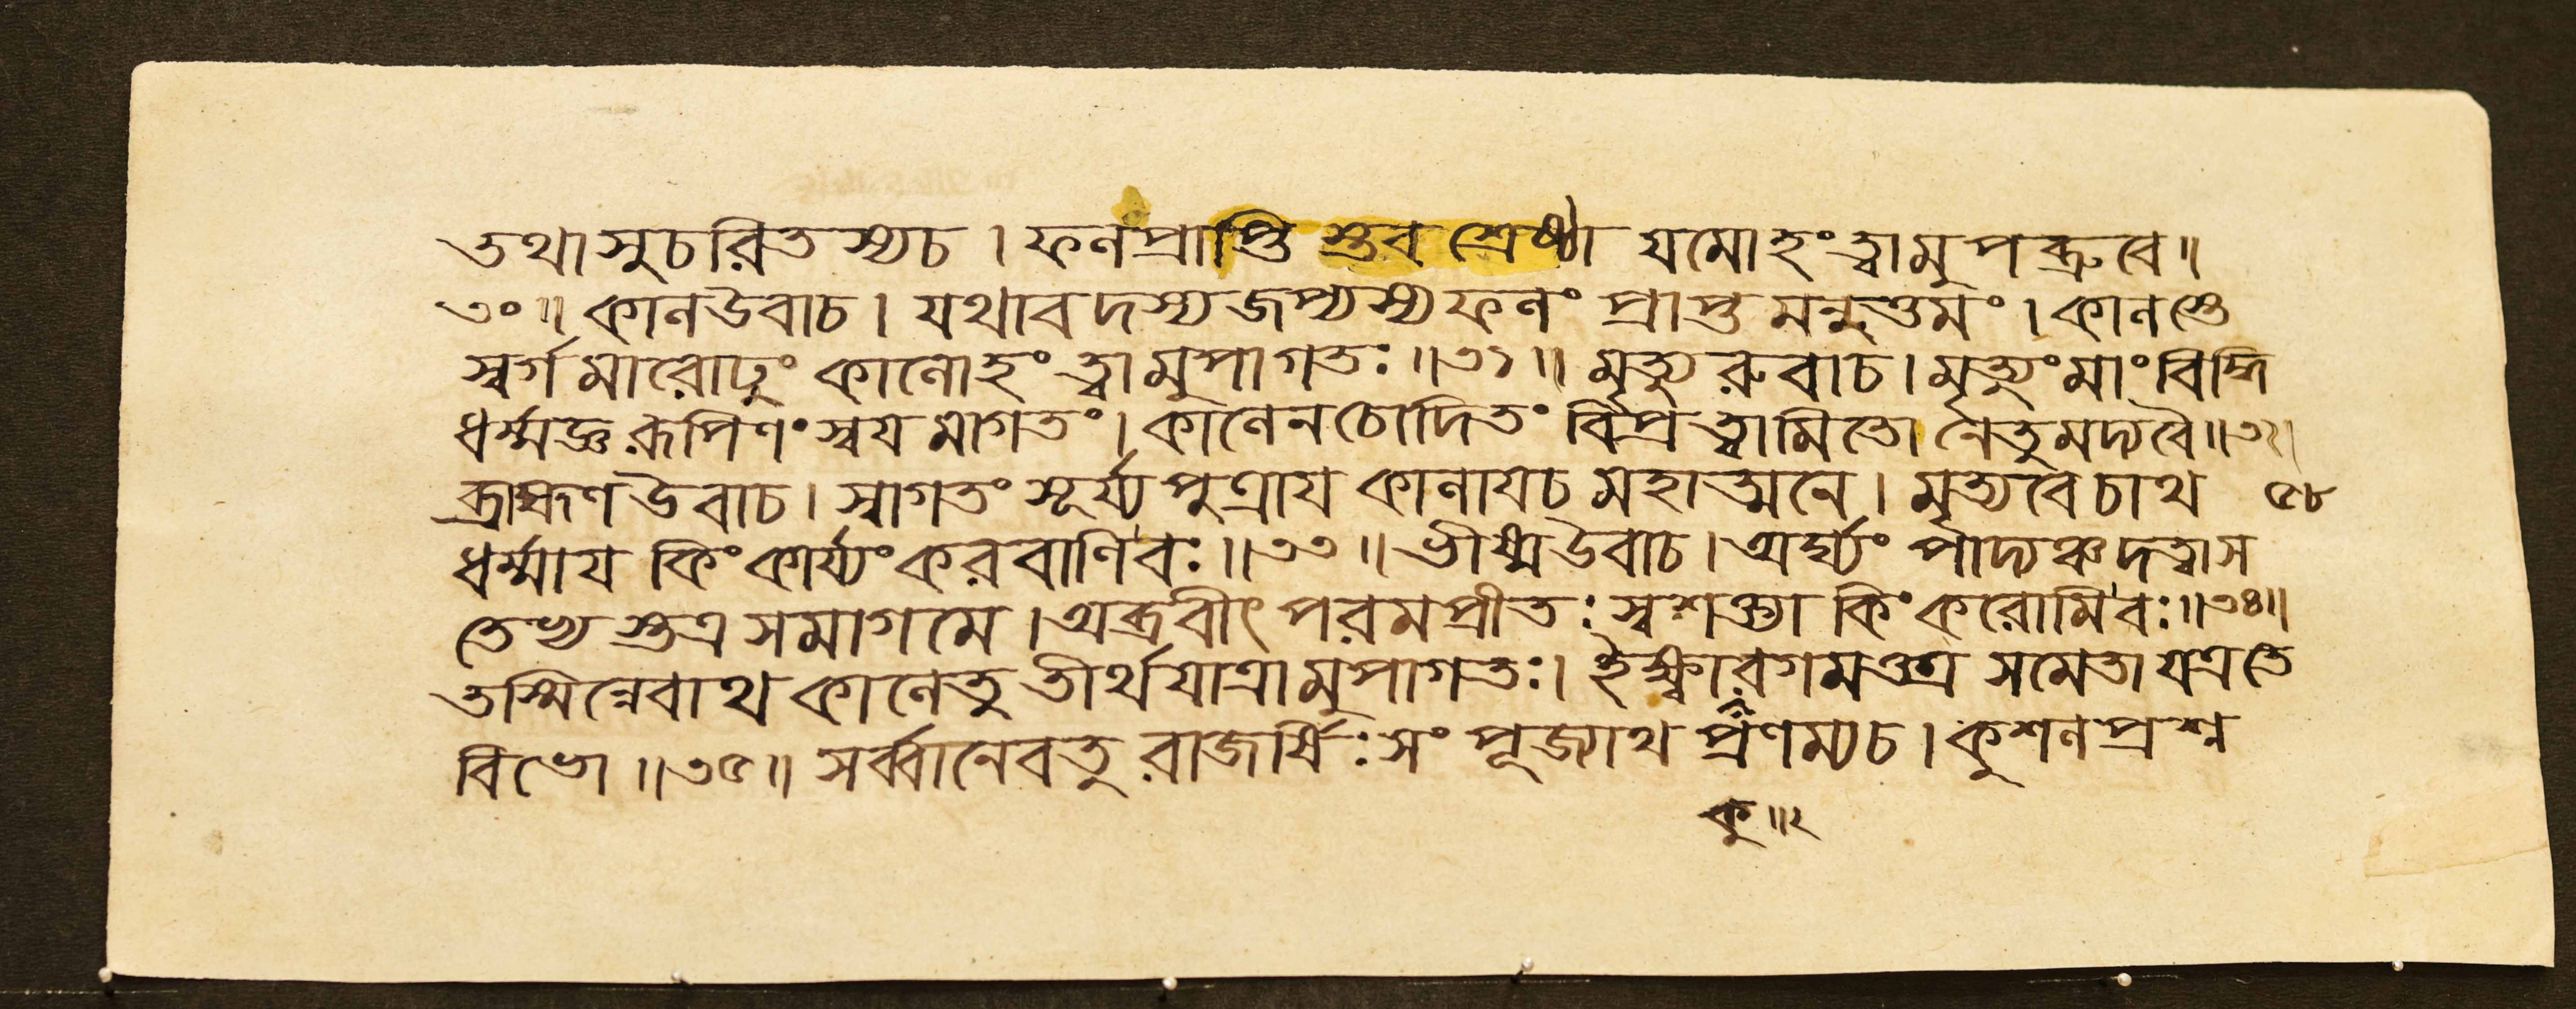 তথা সুচরিতস্যচ । ফলপ্রাপ্তি স্তব শ্রেষ্ঠা যমোহং ত্বামুপব্রুবে ॥
৩০ ॥ কাল উবাচ । যথাবদস্য জপ্যস্য ফলং প্রাপ্তমনুত্তমং । কালস্তে
স্বর্গমারোঢ়ুং কালোহং ত্বামুপাগতঃ ॥ ৩১ ॥ মৃত্যুরুবাচ । মৃত্যুং মাং বিদ্ধি
ধর্ম্মজ্ঞ রূপিণং স্বযমাগতং । কালেন চোদিতং বিপ্র ত্বামিতো নেতুমদ্যবৈ ॥ ৩২ ।
ব্রাহ্মণ উবাচ । স্বাগতং সূর্য্যপুত্রায কালাযচ মহাত্মনে । মৃত্যবে চাথ
৫৮
ধর্ম্মায কিং কার্য্যং করবাণি বঃ ॥ ৩৩ ॥ ভীষ্ম উবাচ । অর্ঘ্যং পাদ্যঞ্চ দত্বা স
তেভ্য স্তত্র সমাগমে । অব্রবীৎ পরমপ্রীতঃ স্বশক্ত্যা কিং করোমি বঃ ॥ ৩৪ ॥
তস্মিন্নেবাথ কালেতু তীর্থযাত্রামুপাগতঃ । ইক্ষ্বাকুরগমত্তত্র সমেতা যত্রতে
বিভো ॥ ৩৫ ॥ সর্ব্বানেবতু রাজর্ষিঃ সং পূজ্যাথ প্রণম্যচ । কুশলপ্রশ্ন
কু ॥ ২